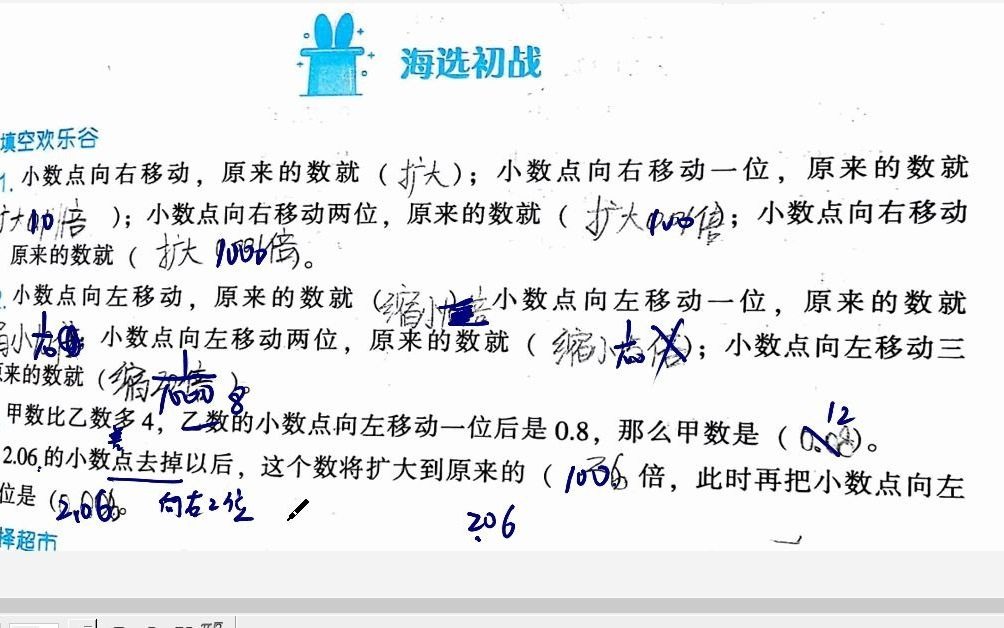 海选初战
填空欢乐谷
1. 小数点向右移动，原来的数就（扩大）；小数点向右移动一位，原来的数就
扩大10倍）；小数点向右移动两位，原来的数就（扩大100倍；小数点向右移动
原来的数就（扩大1000倍）。
小数点向左移动，原来的数就（缩小 小数点向左移动一位，原来的数就
小数点向左移动两位，原来的数就（缩小1/100）；小数点向左移动三
来的数就（缩1/1000）。
8
甲数比乙数多4，乙数的小数点向左移动一位后是0.8，那么甲数是（0.08）。
12
差
2.06的小数点去掉以后，这个数将扩大到原来的（100）倍，此时再把小数点向左
位是（2.06）。 向右2位
206
择超市